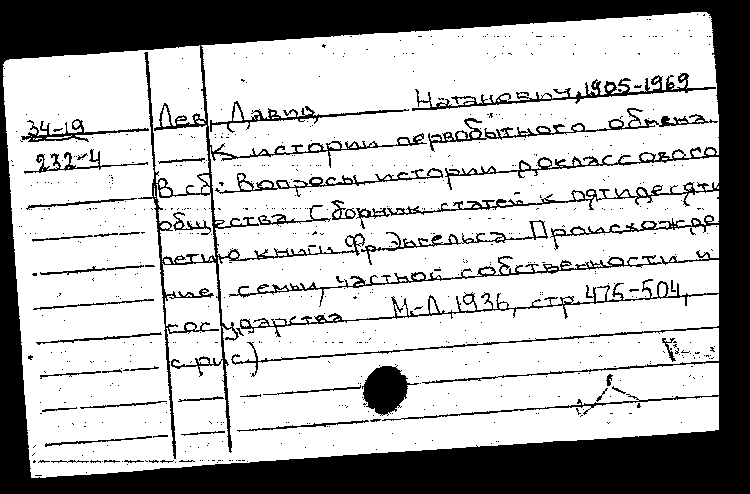 34-19 Лев, Давид Натанович, 1905-1969
232-4 К истории первобытного обмена.
(В сб: Вопросы истории доклассового
общества. Сборник статей к пятидесяти
летию книги Фр. Энгельса Происхожде
ние семьи, частной собственности и
государства М.-Л., 1936, стр. 475-504,
с рис.)